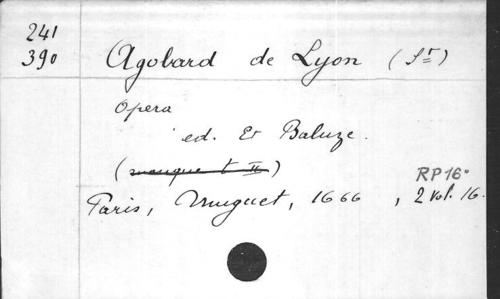 241
390
Agobard de Lyon (St)
Opera
ed. Et Baluze.
(manque t II)
RP 16°
Paris, Muguet, 1666, 2 vol. 16.